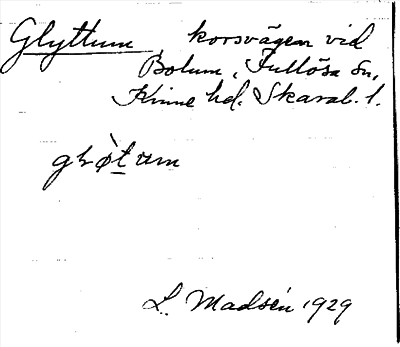 Glyttum, korsvägen vid
Bolum, Fullösa sn,
Kinne hd. Skarab. l.
glø̀t um
L. Madsén 1929